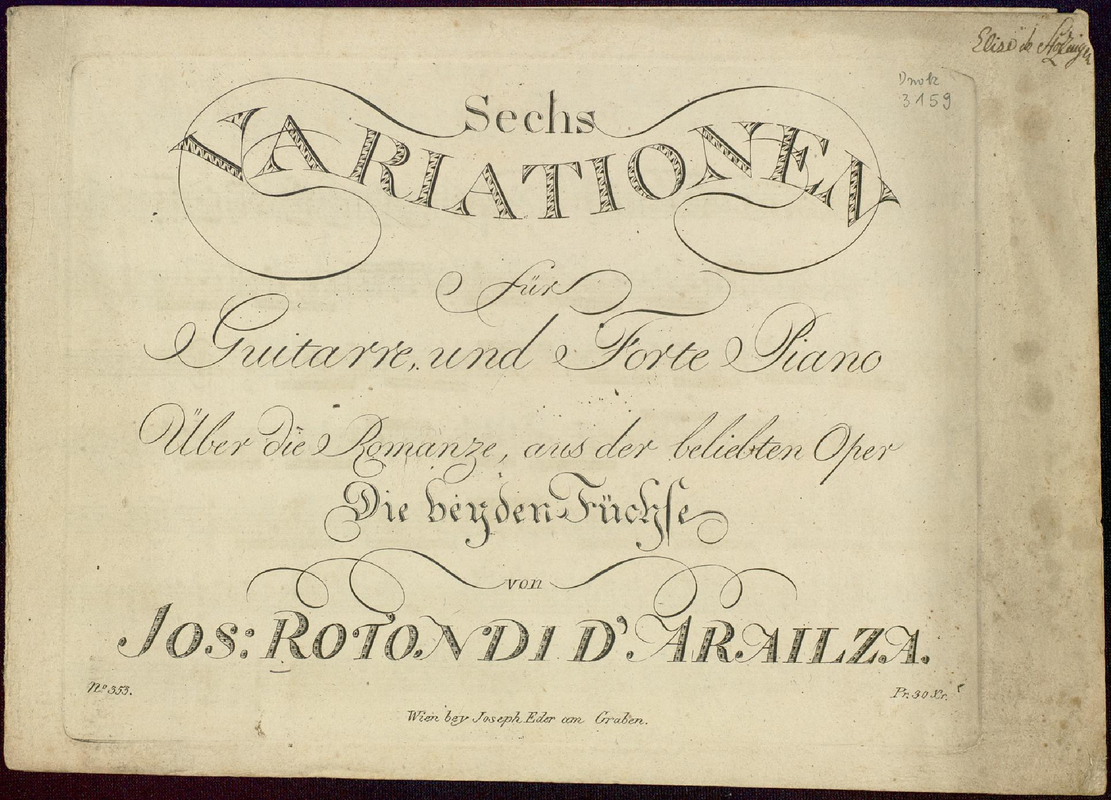 Elise de
Druck
3159
Sechs
VARIATIONEN
für
Guitarre, und Forte Piano
Über die Romanze, aus der beliebten Oper
Die beyden Füchse
von
JOS: ROTONDI D'ARAILZA.
No 353.
Pr. 30 Xr.
Wien bey Joseph Eder am Graben.